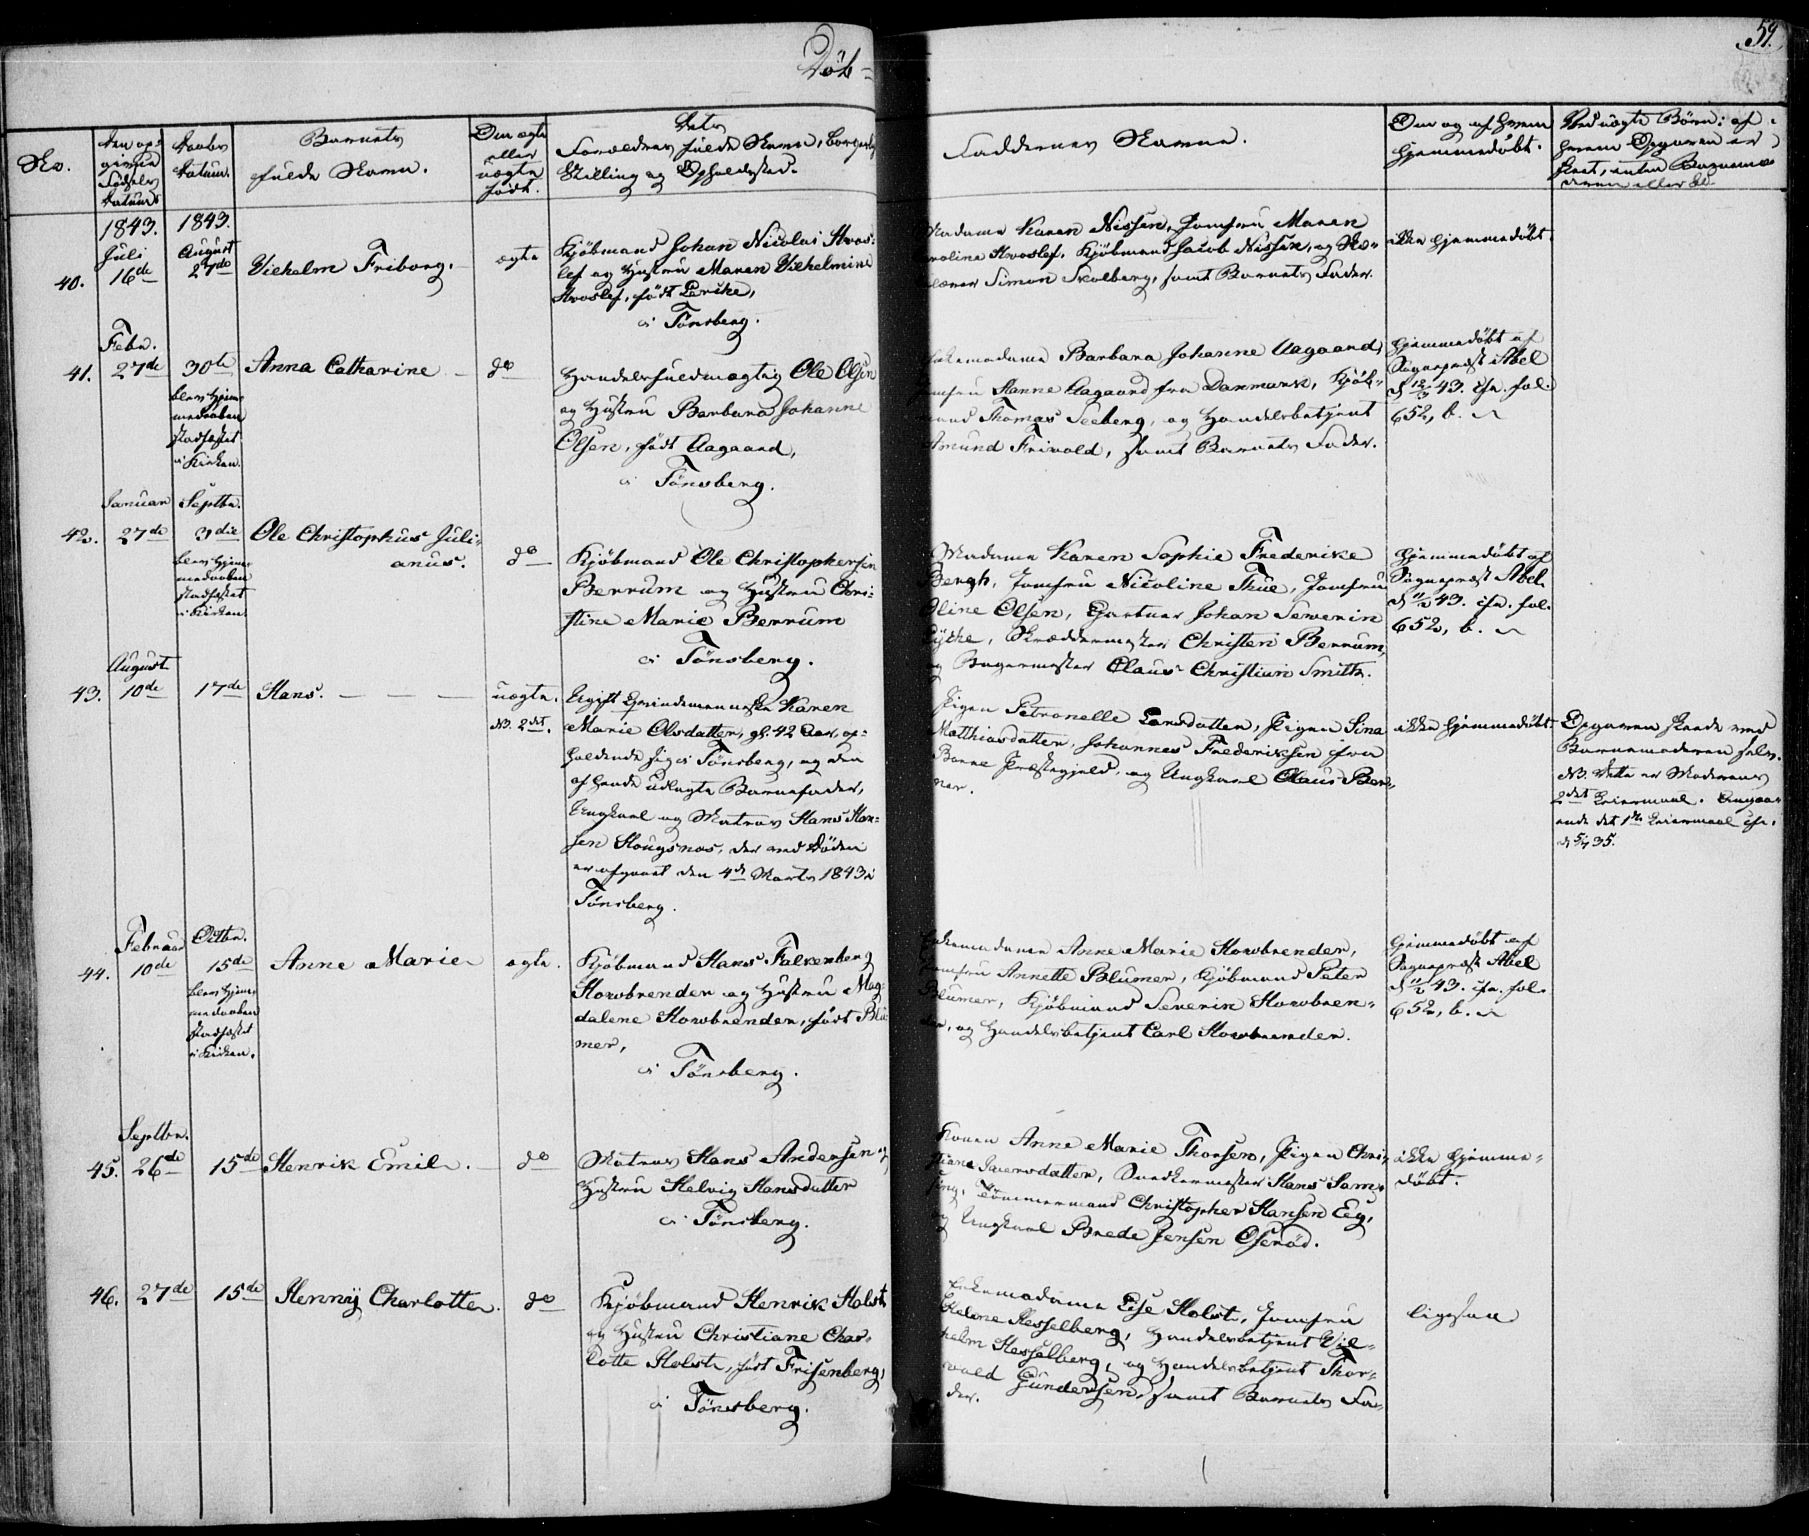 Døb-
59.
No.
Den op-
givne
Fødsels
Datum.
Daabs
Datum.
Barnets
fulde Navn.
Om ægte
eller
uægte
født.
Dets
Forældres fulde Navn, borgerlig
Stilling og Opholdssted.
Faddernes Navne.
Om og af hvem
hjemmedøbt.
Ved uægte Børn: af
hvem Opgaven er
skeet, enten Barnemo-
deren eller
1843.
Juli
40. 16de
1843.
August
27de
Vilhelm Friborg.
ægte
Kjøbmand Johan Nicolai Hvos-
lef og Hustru Maren Vilhelmine
Hvoslef, født Lercke,
i Tönsberg.
Madame Karen Nissen, Jomfru Maren
Carolina Hvoslef, Kjøbmand Jacob Nissen, og
Simon Stolberg, samt Barnets Fader.
ikke hjemmedøbt.
Febr.
41. 27de
30te
blev hjem-
medaaben
stadfæstet
i Kirken.
Anna Catharine
do
Handelsfuldmægtig Ole Olsen
og Hustru Barbara Johanne
Olsen, født Aagaard,
i Tönsberg.
Enkemadame Barbara Johanne Aagaard,
Jomfru Hanne Aagaard fra Danmark, Kjøb-
mand Thomas Seeberg, og Handelsbetjent
Amund Frivold, samt Barnets Fader.
Hjemmedøbt af
Sognepræst Abel
d 12/3 43. cfr. fol.
652, b.
Januar
42. 27de
Septbr.
3die
blev hjem-
medaaben
stadfæstet
i Kirken.
Ole Christophus Juli-
anus.
do
Kjøbmand Ole Christophersen
Berrum og Hustru Chri-
stine Marie Berrum
i Tönsberg.
Madame Karen Sophie Frederike
Bergh, Jomfru Nicoline Thue, Jomfru
Oline Olsen, Gartner Johan Severin
Lycke, Skræddermester Christen Berrum,
og Bagermester Claus Christian Smith.
Hjemmedøbt af
Sognepræst Abel
d 11/2 43. cfr. fol.
652, b.
August
43. 10de
17de
Hans.
uægte.
NB. 2det.
Ugift Qvindemenneske Karen
Marie Olsdatter, gl. 42 Aar, op-
holdende sig i Tönsberg, og den
af hende udlagte Barnefader,
Ungkarl og Matros Hans Han-
sen Hougsnæs, der ved Døden
er afgaaet den 4de Marts 1843 i
Tönsberg.
Pigen Petronelle Larsdatter, Pigen Sina
Matthiasdatter, Johannes Frederiksen fra
Borre Præstegjeld, og Ungkarl Claus Ber-
ner.
ikke hjemmedøbt.
Opgaven skeede ved
Barnemoderen selv.
NB. Dette er Moderens
2det Leiermaal. Angaa-
ende det 1ste Leiermaal cfr.
d 5/7 35.
Februar
44. 10de
Octbr.
15de
blev hjem-
medaaben
stadfæstet
i Kirken.
Anne Marie
ægte.
Kjøbmand Hans Falkenberg
Howbrender og Hustru Mag-
dalene Howbrender, født Blu-
mer,
i Tönsberg.
Enkemadame Anne Marie Howbrender,
Jomfru Annette Blumer, Kjøbmand Peter
Blumer, Kjøbmand Severin Howbren-
der, og Handelsbetjent Carl Howbrender.
Hjemmedøbt af
Sognepræst Abel
d 11/2 43. cfr. fol.
652, b.
Septbr.
45. 26de
15de
Henrik Emil.
do
Matros Hans Andersen og
Hustru Helvig Hansdatter
i Tönsberg.
Konen Anne Marie Thorsen, Pigen Chri-
stiane Iversdatter, Snedkermester Hans Sam-
sing, Tömmermand Christopher Hansen Eeg,
og Ungkarl Brede Jensen Oserød.
ikke hjemme-
døbt.
46. 27de
15de
Henny Charlotte.
do
Kjøbmand Henrik Holst
og Hustru Christiane Char-
lotte Holst, født Frisenberg,
i Tönsberg.
Enkemadame Else Holst, Jomfru
Helene Hesselberg, Handelsbetjent Vil-
helm Hesselberg, og Handelsbetjent Thor-
vald Gundersen, samt Barnets Fa-
der.
ligesaa